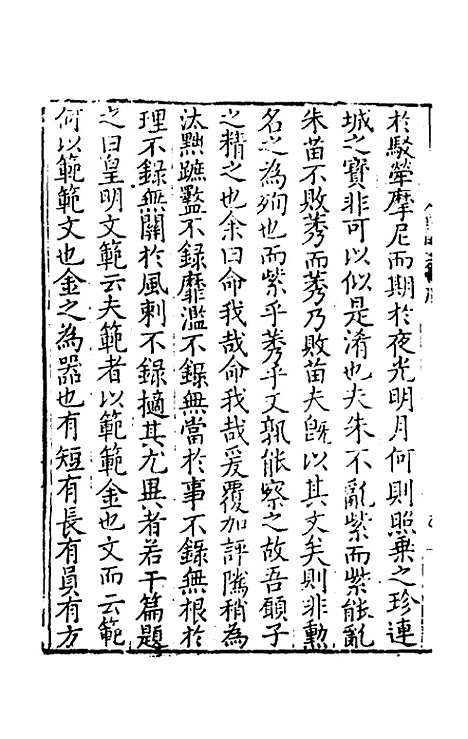 於駁犖摩尼而期於夜光明月何則照乗之珍連
城之寳非可以似是淆也夫朱不亂紫而紫能亂
朱苗不敗莠而莠乃敗苗夫旣以其文矣則非勲
名之為殉也而紫乎莠乎文孰能察之故吾願子
之精之也余曰命我哉命我哉爰覆加評隲稍為
汰黜蹠盭不録靡濫不録無當於事不録無根於
理不録無關於風刺不録擿其尤異者若干篇題
之曰皇明文範云夫範者以範範金也文而云範
何以範範文也金之為器也有短有長有員有方